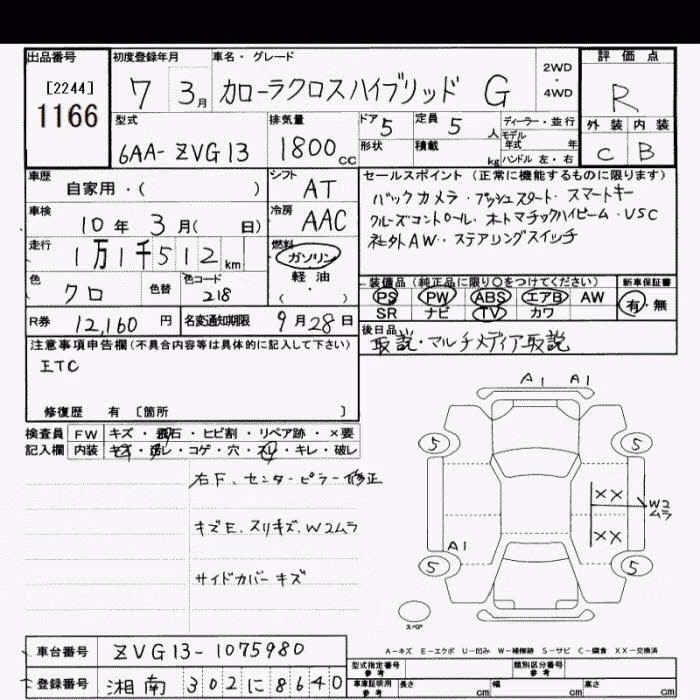 出品番号 初度登録年月 車名・グレード 評価点
[2244] 7 3月 カローラクロスハイブリッド G 2WD・4WD R
1166
型式 排気量 ドア 5 定員 5人 ディーラー・並行 外装 内装
6AA-ZVG13 1800cc モデル年式 年
形状 積載 kg ハンドル 左・右 C B
車歴 シフト セールスポイント(正常に機能するものに限ります)
自家用・( ) AT バックカメラ・プッシュスタート・スマートキー
車検 冷房 クルーズコントロール・オートマチックハイビーム・VSC
10年3月( 日) AAC 社外AW・ステアリングスイッチ
走行 燃料
1万1千512km ガソリン 装備品(純正品に限り○をつけてください) 新車保証書
色 色替 色コード 軽油・ PS PW ABS エアB AW 有・無
クロ 218 ( ) SR ナビ TV カワ
R券 12,160円 名変通知期限 9月28日 後日品
取説・マルチメディア取説
注意事項申告欄(不具合内容等は具体的に記入して下さい)
ETC
修復歴 有 〔箇所 〕
検査員 FW キズ・飛石・ヒビ割・リペア跡・×要
記入欄 内装 キズ・汚レ・コゲ・穴・スレ・キレ・破レ
右F、センターピラー修正
キズE、スリキズ、W2ムラ
サイドカバーキズ
A1 A1
5 5
XX W2ムラ
XX
A1
5 5
スペア
A-キズ E-エクボ U-凹み W-補修跡 S-サビ C-腐食 XX-交換済
車台番号 ZVG13-1075980
登録番号 湘南 302に8640
型式指定番号 参考 類別区分番号 参考
車庫証明用 参考 長さ cm 幅 cm 高さ cm